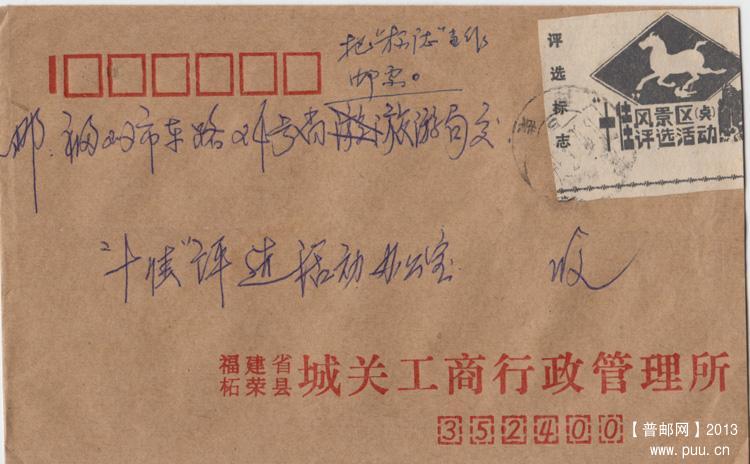 把“标志”当作
邮票。
评选标志
“十佳风景区(点)
评选活动
市东路
号省旅游局交
“十佳”评选活动办公室 收
福建省
柘荣县
城关工商行政管理所
352400
【普邮网】2013
www.puu.cn